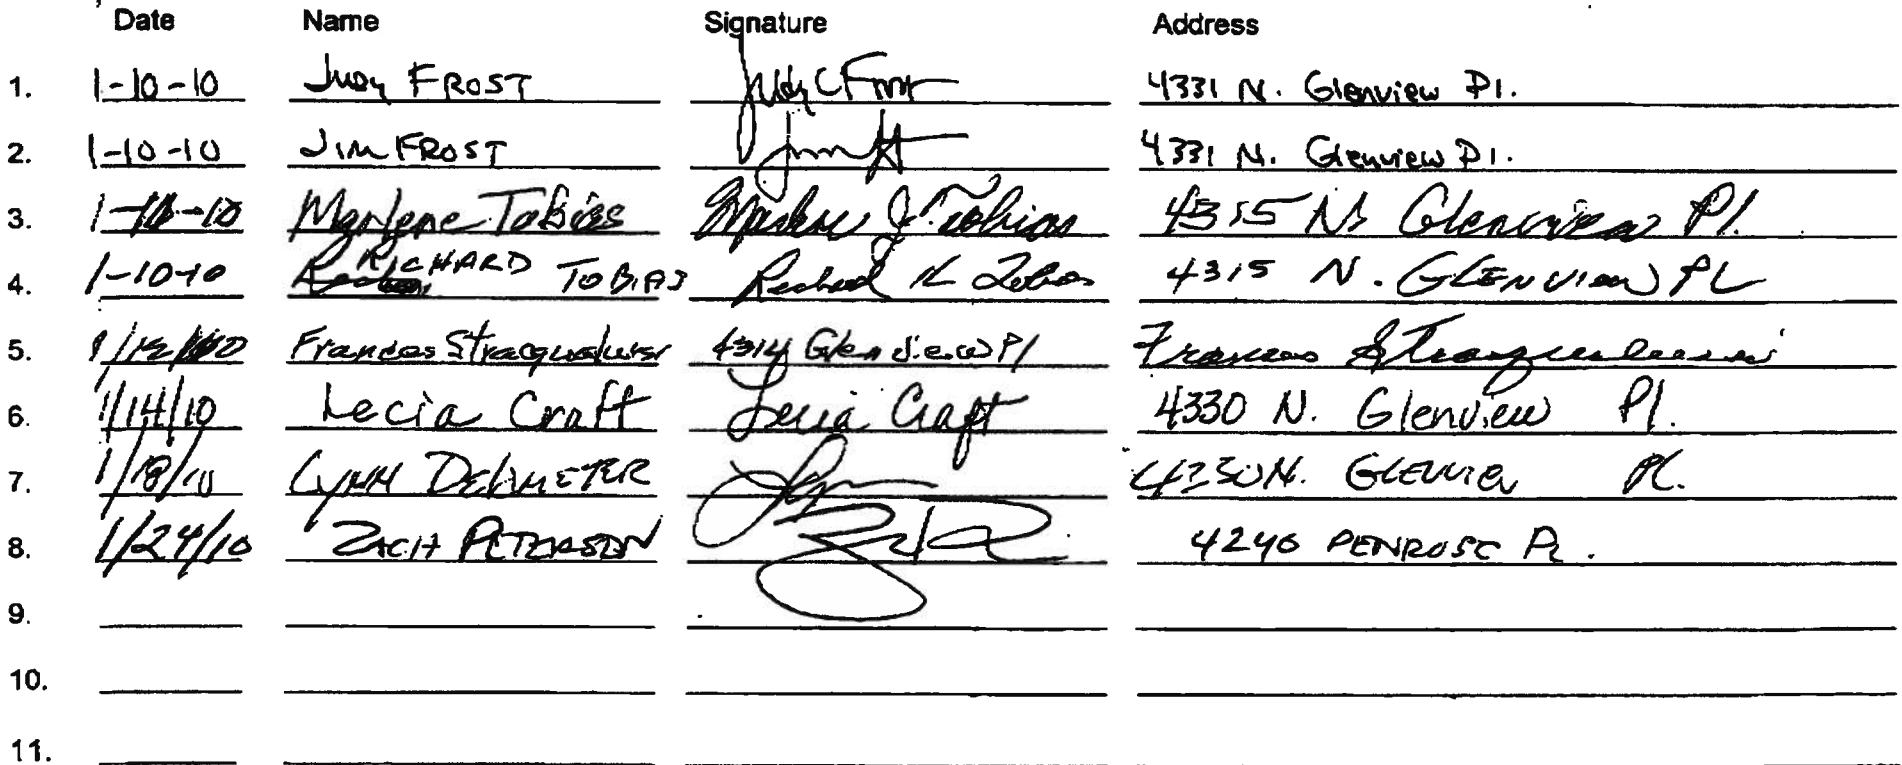 Date Name Signature Address
1. 1-10-10 Judy FROST Judy C Frost 4331 N. Glenview Pl.
2. 1-10-10 JIM FROST Jim 4331 N. Glenview Pl.
3. 1-10-10 Marlene Tobias Marlene J. Tobias 4315 N. Glenview Pl.
4. 1-10-10 RICHARD TOBIAS Richard K Tobias 4315 N. GLENVIEW PL
5. 1/12/10 Frances Stracqualursi 4314 Glenview Pl Frances Stracqualursi
6. 1/14/10 Lecia Craft Lecia Craft 4330 N. Glenview Pl.
7. 1/18/10 LYNN Lynn 4330 N. GLENVIEW PL.
8. 1/24/10 ZACH PETERSON 4240 PENROSE PL.
9.
10.
11.